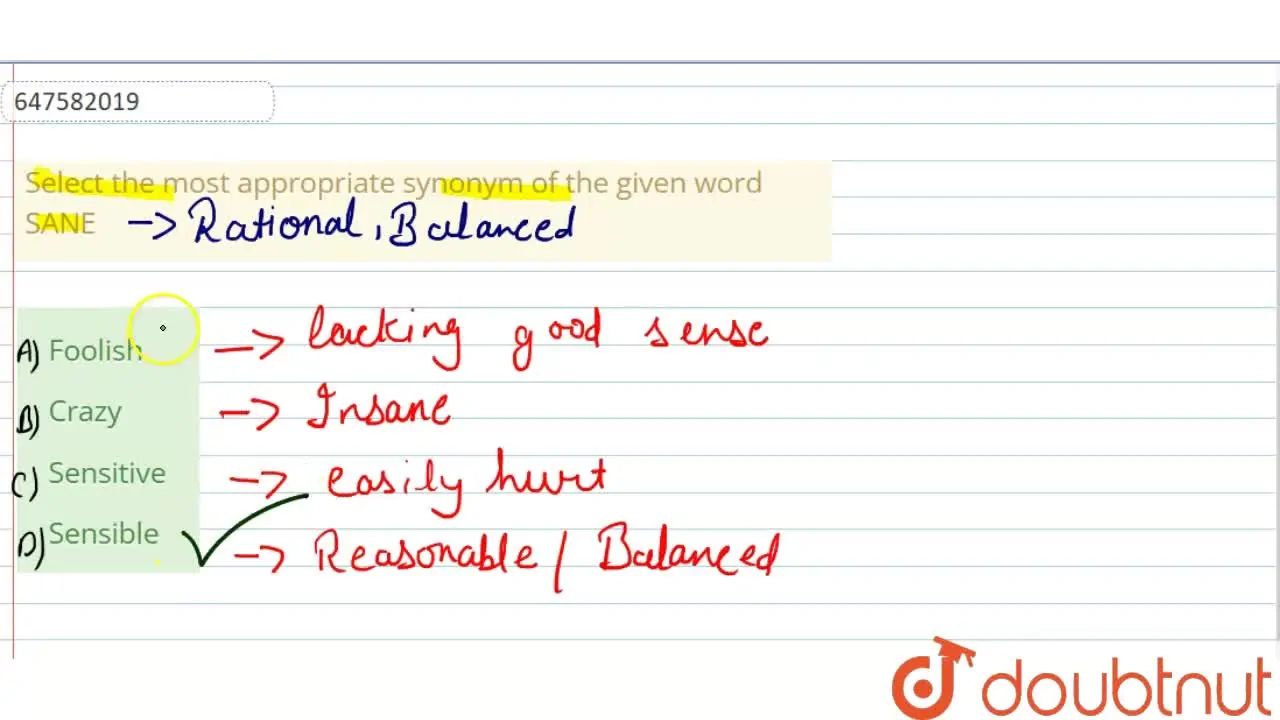 647582019
Select the most appropriate synonym of the given word
SANE -> Rational, Balanced
A) Foolish -> lacking good sense
B) Crazy -> Insane
C) Sensitive -> easily hurt
D) Sensible -> Reasonable / Balanced
doubtnut